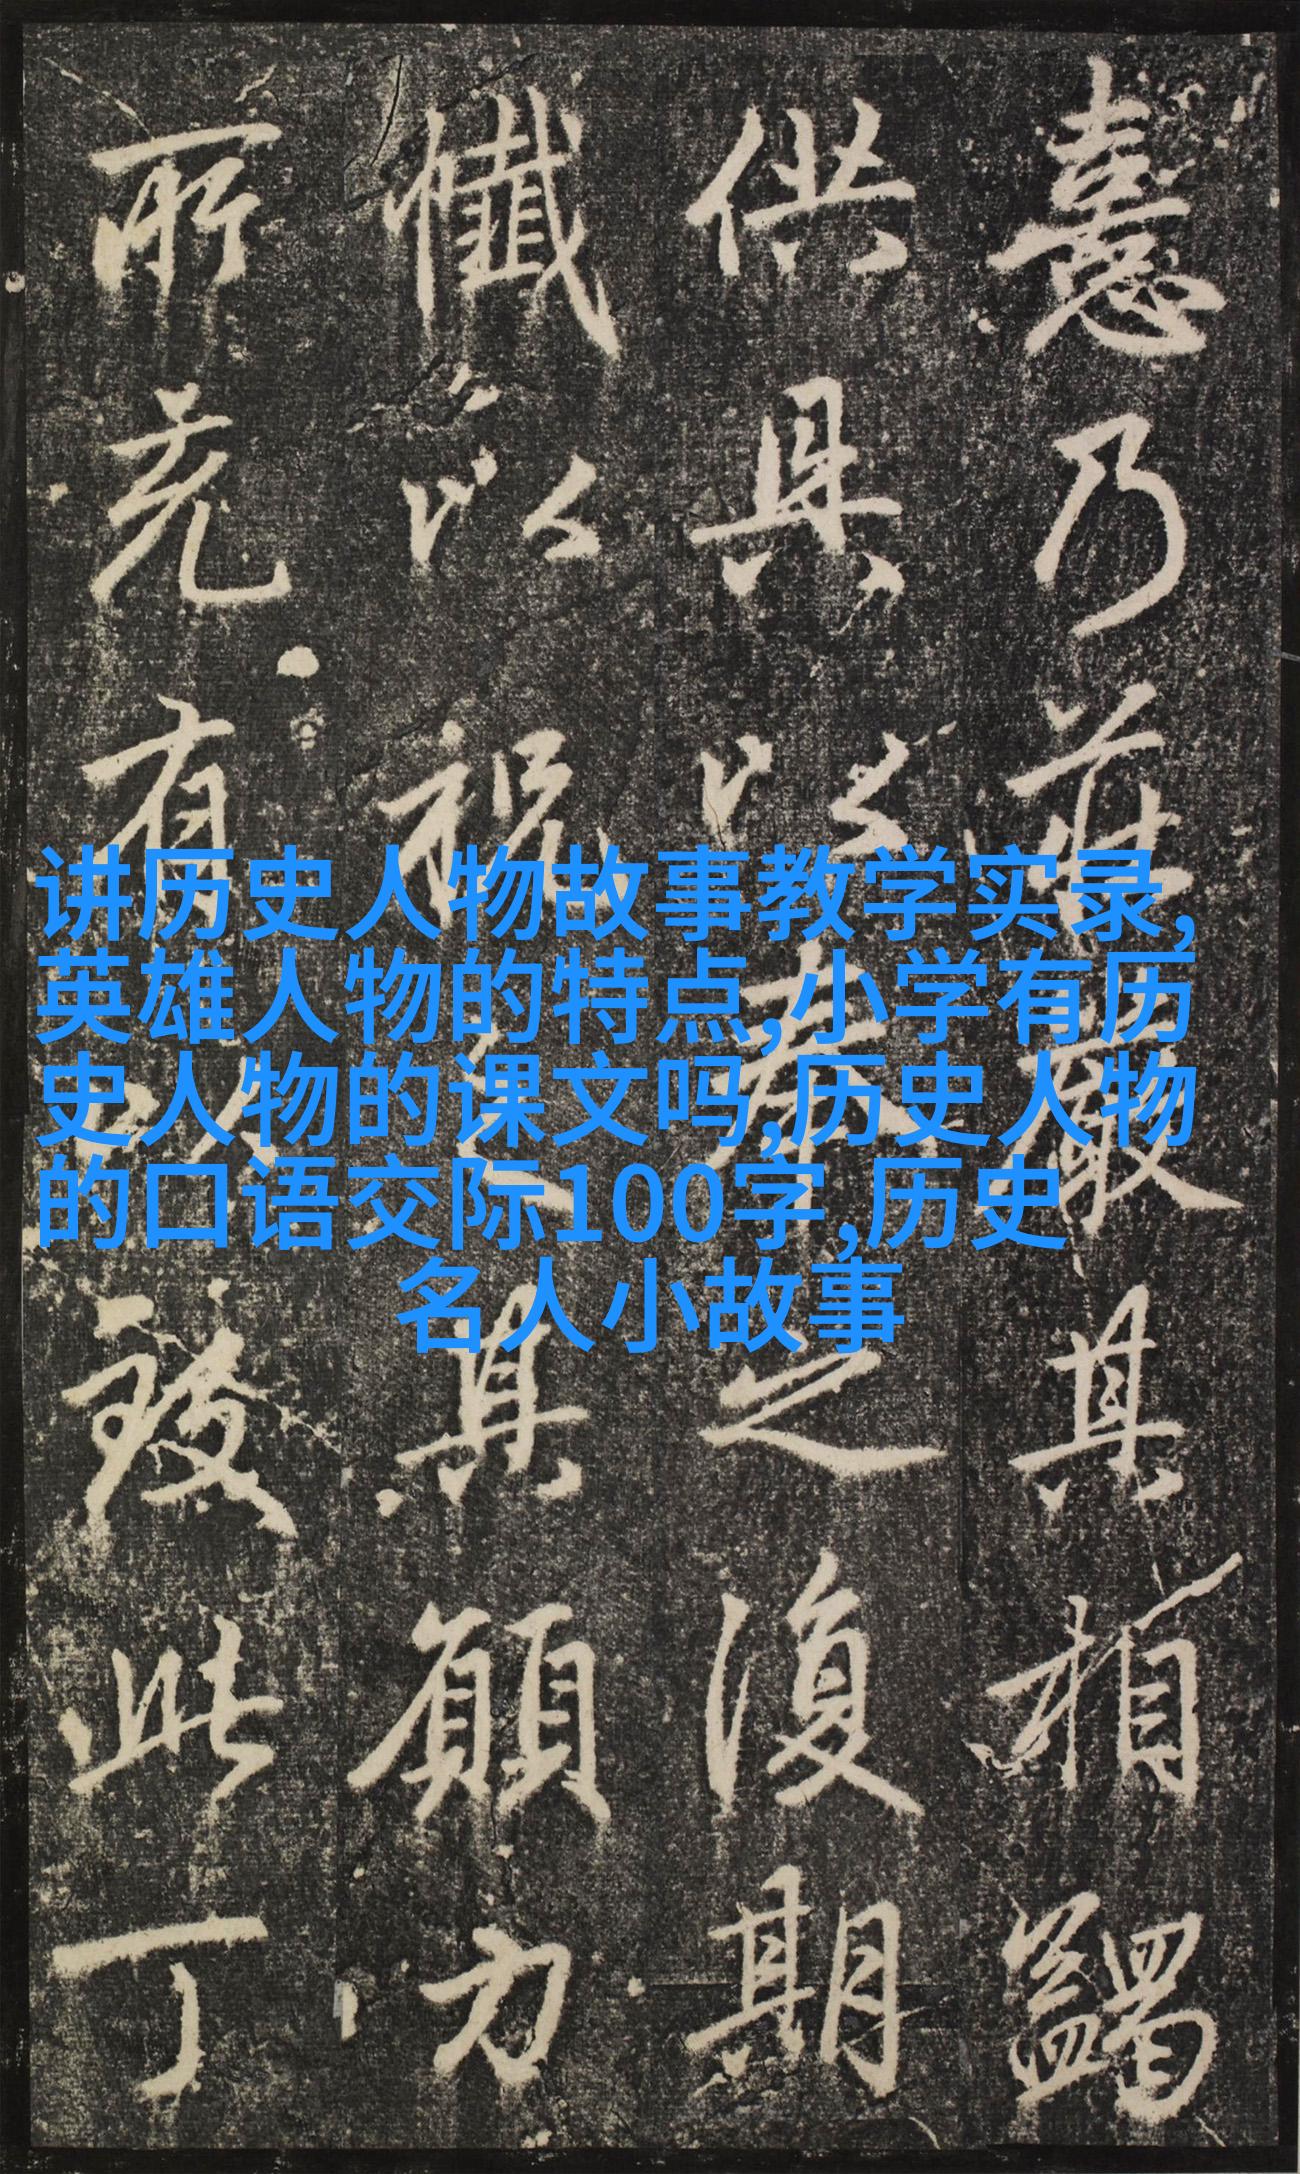 讲历史人物故事教学实录,
英雄人物的特点,小学有历
史人物的课文吗,历史人物
的口语交际100字,历史
名人小故事
憙乃莊嚴其相蠲
供具以奉之復期
懺以祝之其願力
所有以致此丁